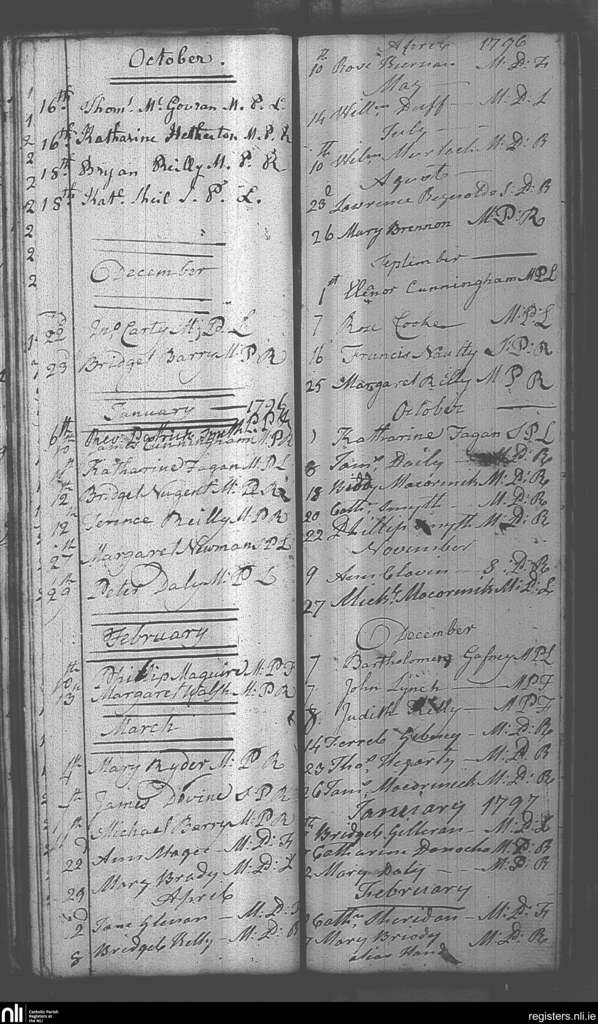 October.
16th Thoms. McGovran M. P. L.
16th Katharine Hetherston M. P. R
18th Bryan Reilly M. P. R
18th Kat. Sheil S. P. L.
December
22 Jno. Carty M. P. L
23 Bridget Barry M. P R
January — 1796
6th Revd. Patrick Smyth P. P.
10 Cunningham M. P R
Katharine Fagan M. P L
12 Bridget Nugent M. P. R
12 Terence Reilly M. P R
27 Margaret Newman S P L
29 Peter Daly M. P L
February
10th Phillip Maguire M. P. F
13 Margaret Walsh M. P R
March
4th Mary Ryder M. P R
James Devine S. P R
Michael Barry M. P R
22 Ann Magee — M. D. F
29 Mary Brady M. D. L
April
2d Jane — M. D.
8 Bridget Kelly — M. D. R
April 1796
10th Rose Biernan M. D. F
May
14 Willm. Duff — M. D. L
July —
10th Willm. Murtach M. D. R
Agust —
23d Lawrence Reynolds S. D. R
26 Mary Brennon M. P. R
September —
1st Elenor Cunningham M. P. L
7 Rose Cooke M. P. L
16 Francis Naulty S. P. R
25 Margaret Reilly M P R
October —
1 Katharine Fagan S. P. L
8 Jams. Daily — M. D. R
18 Macormick M. D. R
20 Cathn. Smyth — M. D. R
22 Phillip Smyth M. D. R
November
9 Ann — S. D. R
27 Michl. Macormick M. D. L
December
7 Bartholomew Gafney M. P. L
7 John Lynch — M. P. F
8 Judith Kelly — M. P. F
14 Ferrel — M. D. R
23 Thos. Hegarty — M. D. R
26 Jams. Macormick M. D. R
January 1797
Bridget Gilleran — M. D. L
Catharine M. D. R
2 Mary Daly — M. D. R
February
Cathn. Sheridan — M. D. F
7 Mary Briody M. D. R
alias Hand
nli Catholic Parish
Registers at
the NLI
registers.nli.ie